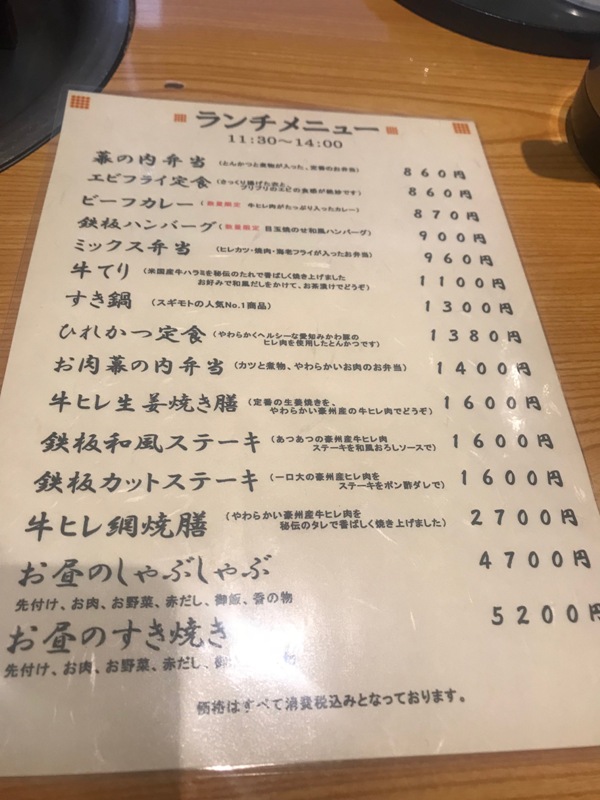 ランチメニュー
11:30〜14:00
幕の内弁当 (とんかつと煮物が入った、定番のお弁当) 860円
エビフライ定食 (さっくり揚げた衣と、プリプリのエビの食感が絶妙です) 860円
ビーフカレー (数量限定 牛ヒレ肉がたっぷり入ったカレー) 870円
鉄板ハンバーグ (数量限定 目玉焼のせ和風ハンバーグ) 900円
ミックス弁当 (ヒレカツ・焼肉・海老フライが入ったお弁当) 960円
牛てり (米国産牛ハラミを秘伝のたれで香ばしく焼き上げました
お好みで和風だしをかけて、お茶漬けでどうぞ) 1100円
すき鍋 (スギモトの人気No.1商品) 1300円
ひれかつ定食 (やわらかくヘルシーな愛知みかわ豚の
ヒレ肉を使用したとんかつです) 1380円
お肉幕の内弁当 (カツと煮物、やわらかいお肉のお弁当) 1400円
牛ヒレ生姜焼き膳 (定番の生姜焼きを、
やわらかい豪州産の牛ヒレ肉でどうぞ) 1600円
鉄板和風ステーキ (あつあつの豪州産牛ヒレ肉
ステーキを和風おろしソースで) 1600円
鉄板カットステーキ (一口大の豪州産ヒレ肉を
ステーキをポン酢ダレで) 1600円
牛ヒレ網焼膳 (やわらかい豪州産牛ヒレ肉を
秘伝のタレで香ばしく焼き上げました) 2700円
お昼のしゃぶしゃぶ 4700円
先付け、お肉、お野菜、赤だし、御飯、香の物
お昼のすき焼き 5200円
先付け、お肉、お野菜、赤だし、御
価格はすべて消費税込みとなっております。